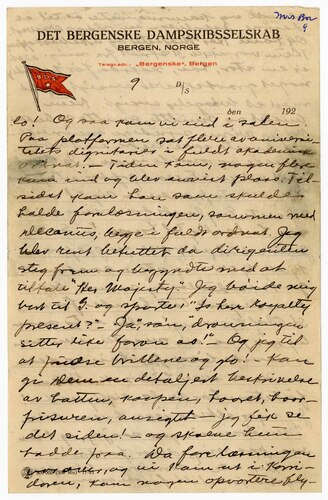 Mrs Bor
9
DET BERGENSKE DAMPSKIBSSELSKAB
BERGEN, NORGE
Telegr.adr.: „Bergenske", Bergen
9 D/S
den 192
lo! Og saa kom vi ind i salen.
Paa platformen sat flere av universi-
tetets dignitarier i fuldt akademisk
ornat. – Tiden kom, nogen fler
kom ind og blev anvist plass. Til-
sidst kom han som skulde
holde forelæsningen, sammen med
begge i fuldt ordnat. Jeg
blev rent befippet da dirigenten
steg frem og begyndte med at
tiltale "Her Majesty". Jeg böide mig
bort til G. og spurte: "Is her royalty
present?" – "Ja, sa'n, dronningen
sitter like foran os!" – Og jeg til
at pudse brillene og glo! – Kan
gi Dem en detaljert beskrivelse
av hatten, kaapen, haaret, haar-
frisuren, ansigtet – jeg fik se
det siden! – og skoene hun
hadde paa. Da forelæsningen
og vi kom ut i kori-
doren, kom nogen opvartere fly-